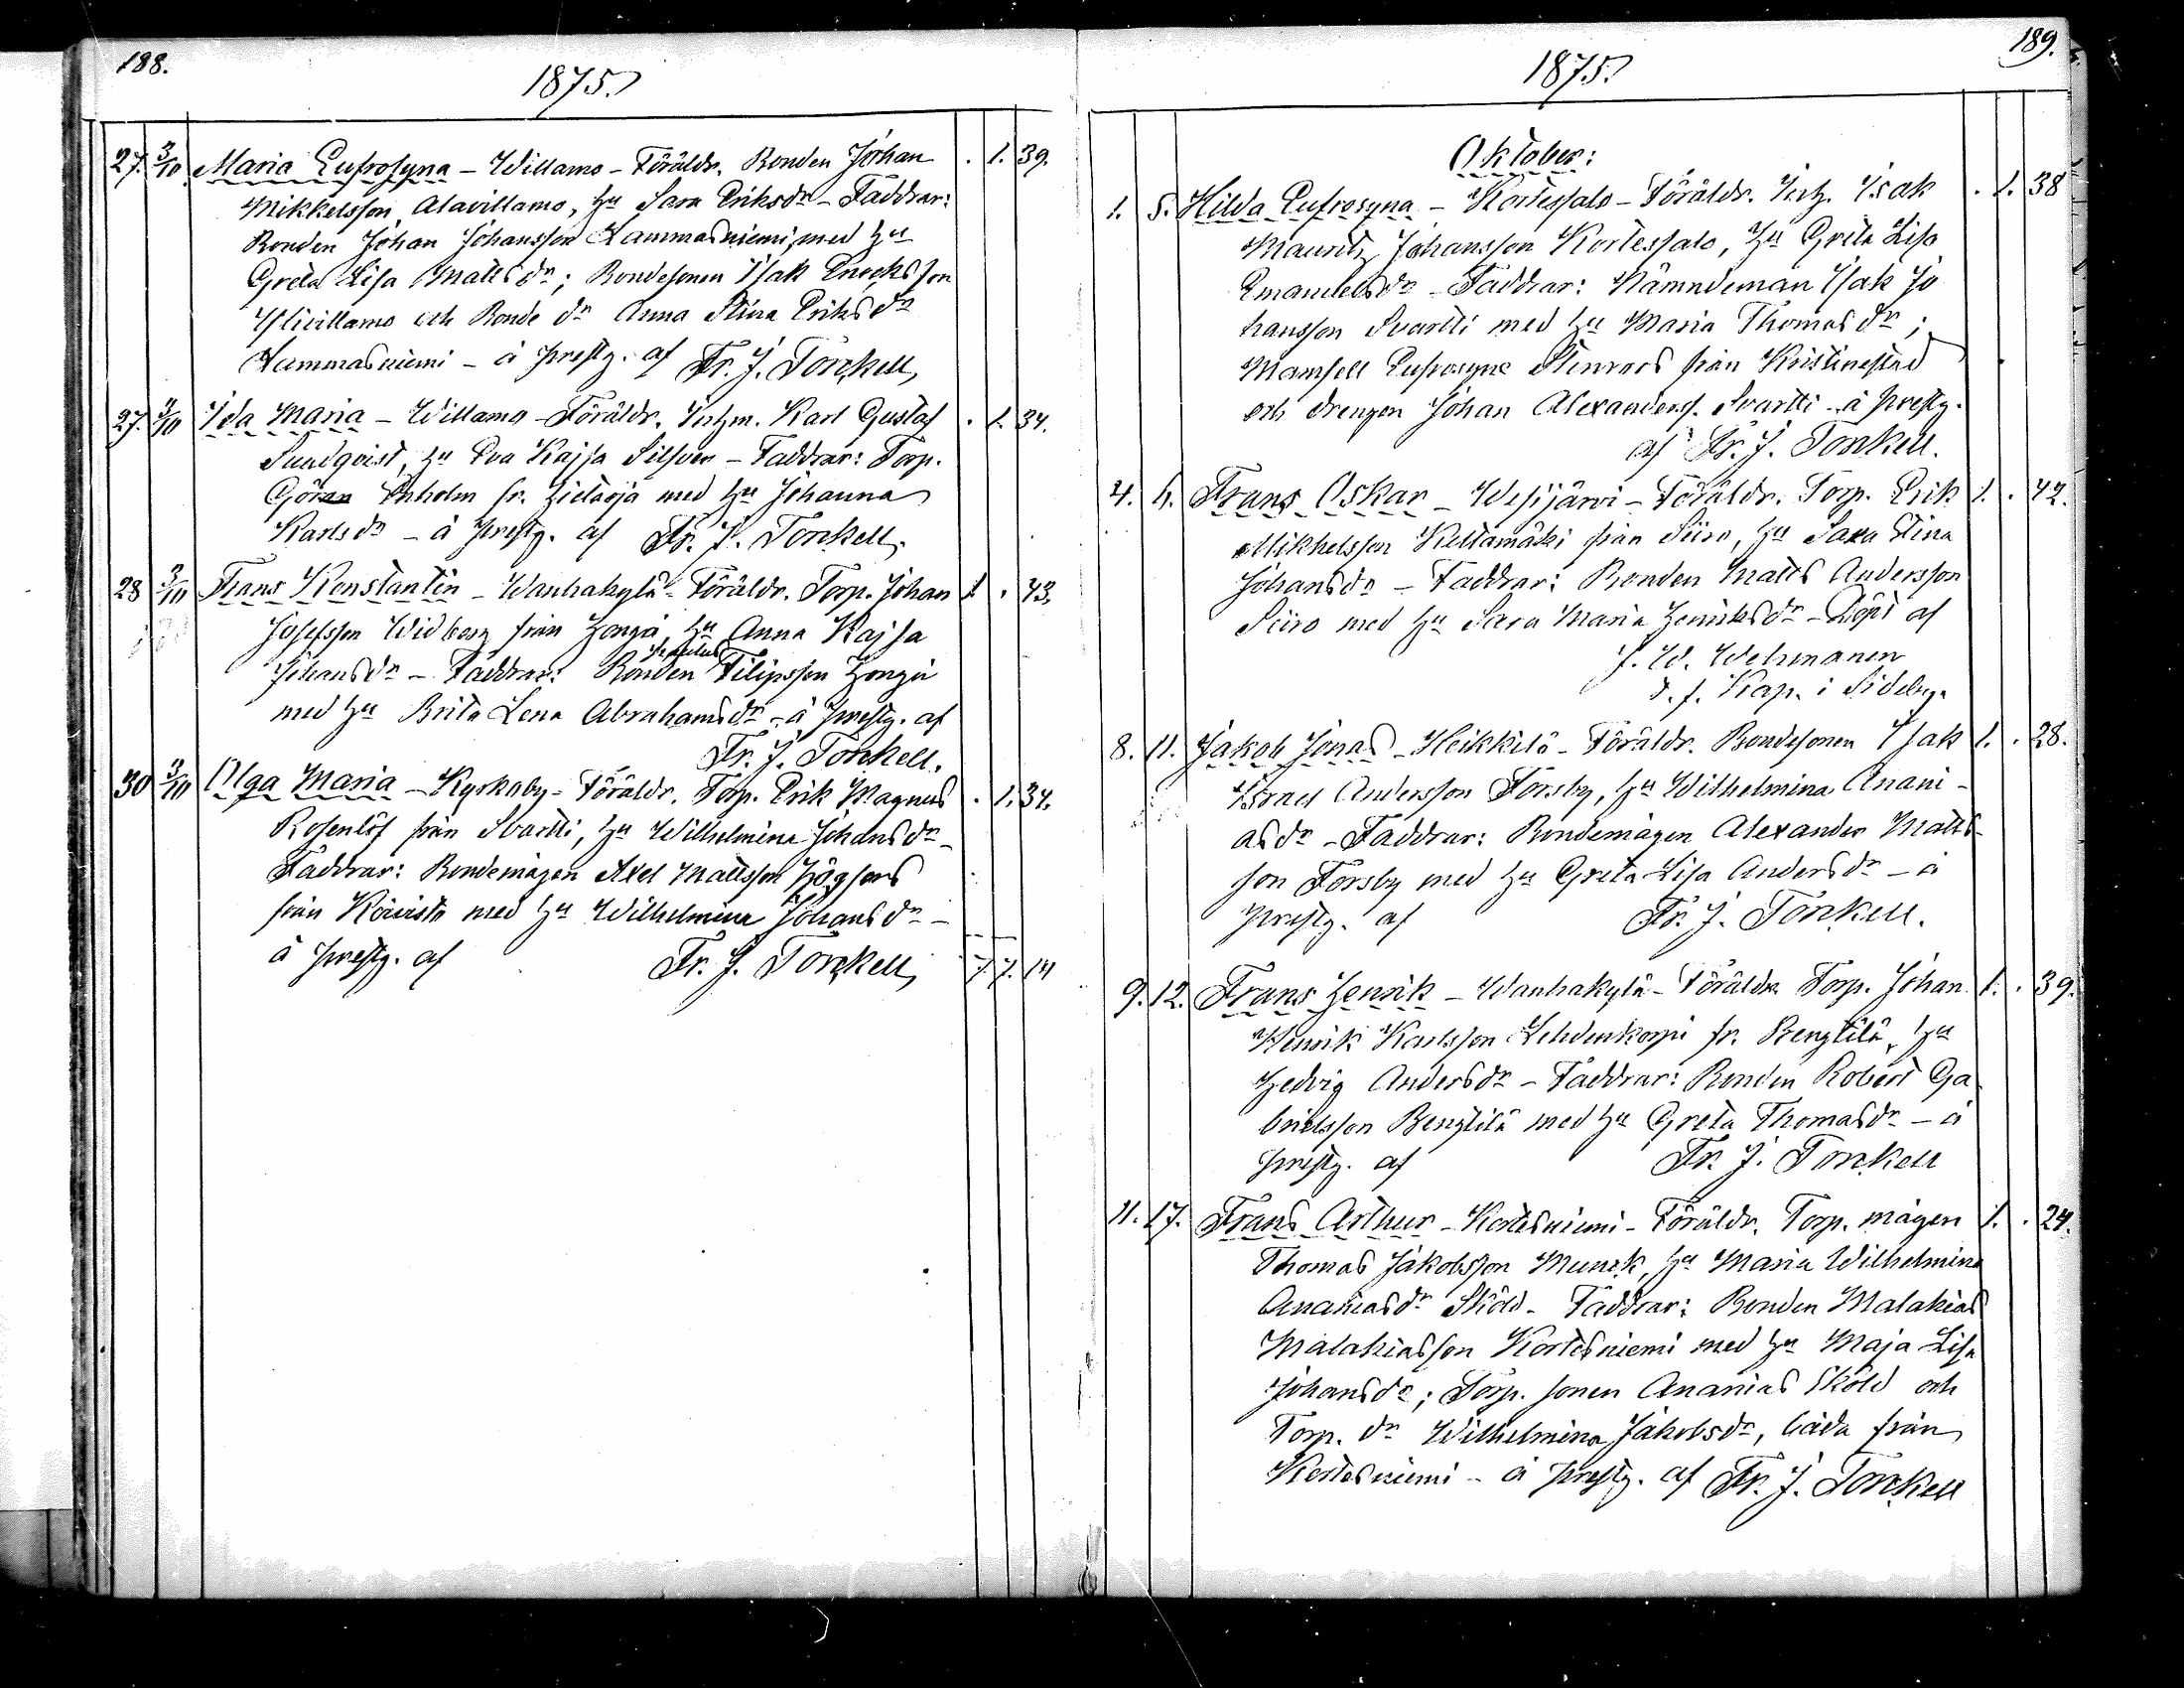 188.
1875.
27. 3/10 Maria Eufrosyna – Willamo – Föräldr. Bonden Johan . 1. 39.
Mikkelsson Alavillamo, hu Sara Eriksdr – Faddrar:
Bonden Johan Johansson Lammasniemi med hu
Greta Lisa Mattsdr; Bondesonen Isak Enocksson
Ylivillamo och Bonde dr Anna Stina Eriksdr
Lammasniemi – å prestg. af Fr. J. Torckell,
27. /10 Ida Maria – Willamo – Föräldr. Inhm. Karl Gustaf . 1. 34.
Sundqvist, hu Eva Kajsa Silfver – Faddrar: Torp.
Göran Enholm fr. med hu Johanna
Karlsdr – å prestg. af Fr. J. Torckell.
28 3/10 Frans Konstantin – Wanhakylä – Föräldr. Torp. Johan 1 . 43.
Josefsson Widberg från Honga, hu Anna Kajsa
Johansdr – Faddrar: Bonden Filipsson Honga
med hu Brita Lena Abrahamsdr – å prestg. af
Fr. J. Torckell.
30 3/10 Olga Maria – Kyrkoby – Föräldr. Torp. Erik Magnus . 1. 34.
Rosenlöf från Svartti, hu Wilhelmina Johansdr –
Faddrar: Bondemågen Axel Mattsson Högfors
från Koivisto med hu Wilhelmina Johansdr –
å prestg. af Fr. J. Torckell, 7. 7. 14
189.
1875.
Oktober:
1. 5. Hilda Eufrosyna – Kortessalo – Föräldr. Inh. Isak . 1. 38
Mauritz Johansson Kortessalo, hu Greta Lisa
Emanuelsdr – Faddrar: Nämndeman Isak Jo
hansson Svartti med hu Maria Thomasdr;
Mamsell Eufrosyne Stenroos från Kristinestad
och drengen Johan Alexanders. Svartti – å prestg.
af Fr. J. Torckell.
4. 6. Frans Oskar – Wesijärvi – Föräldr. Torp. Erik 1. . 42.
Mikhelsson Keltamäki från Siiro, hu Sara Stina
Johansdr – Faddrar: Bonden Matts Andersson
Siiro med hu Sara Maria Henriksdr – Döpt af
J. W. Wehmanen
v. f. Kap. i Sideby.
8. 11. Jakob Jonas – Heikkilä – Föräldr. Bondesonen Isak 1. . 28.
Israel Andersson Forsby, hu Wilhelmina Anani-
asdr – Faddrar: Bondemågen Alexander Matts-
son Forsby med hu Greta Lisa Andersdr – å
prestg. af Fr. J. Torckell.
9. 12. Frans Henrik – Wanhakylä – Föräldr. Torp. Johan 1. . 39.
Henrik Karlsson Lehdenkorpi fr. Bengtilä, hu
Hedvig Andersdr – Faddrar: Bonden Robert Ga
brielsson Bengtilä med hu Greta Thomasdr – å
prestg. af Fr. J. Torckell
11. 17. Frans Arthur – Kortesniemi – Föräldr. Torp. mågen 1. . 24.
Thomas Jakobsson Munck, hu Maria Wilhelmina
Ananiasdr Sköld – Faddrar: Bonden Malakias
Malakiasson Kortesniemi med hu Maja Lisa
Johansdr; Torp. sonen Ananias Sköld och
Torp. dr Wilhelmina Jakobsdr, båda från
Kortesniemi – å prestg. af Fr. J. Torckell